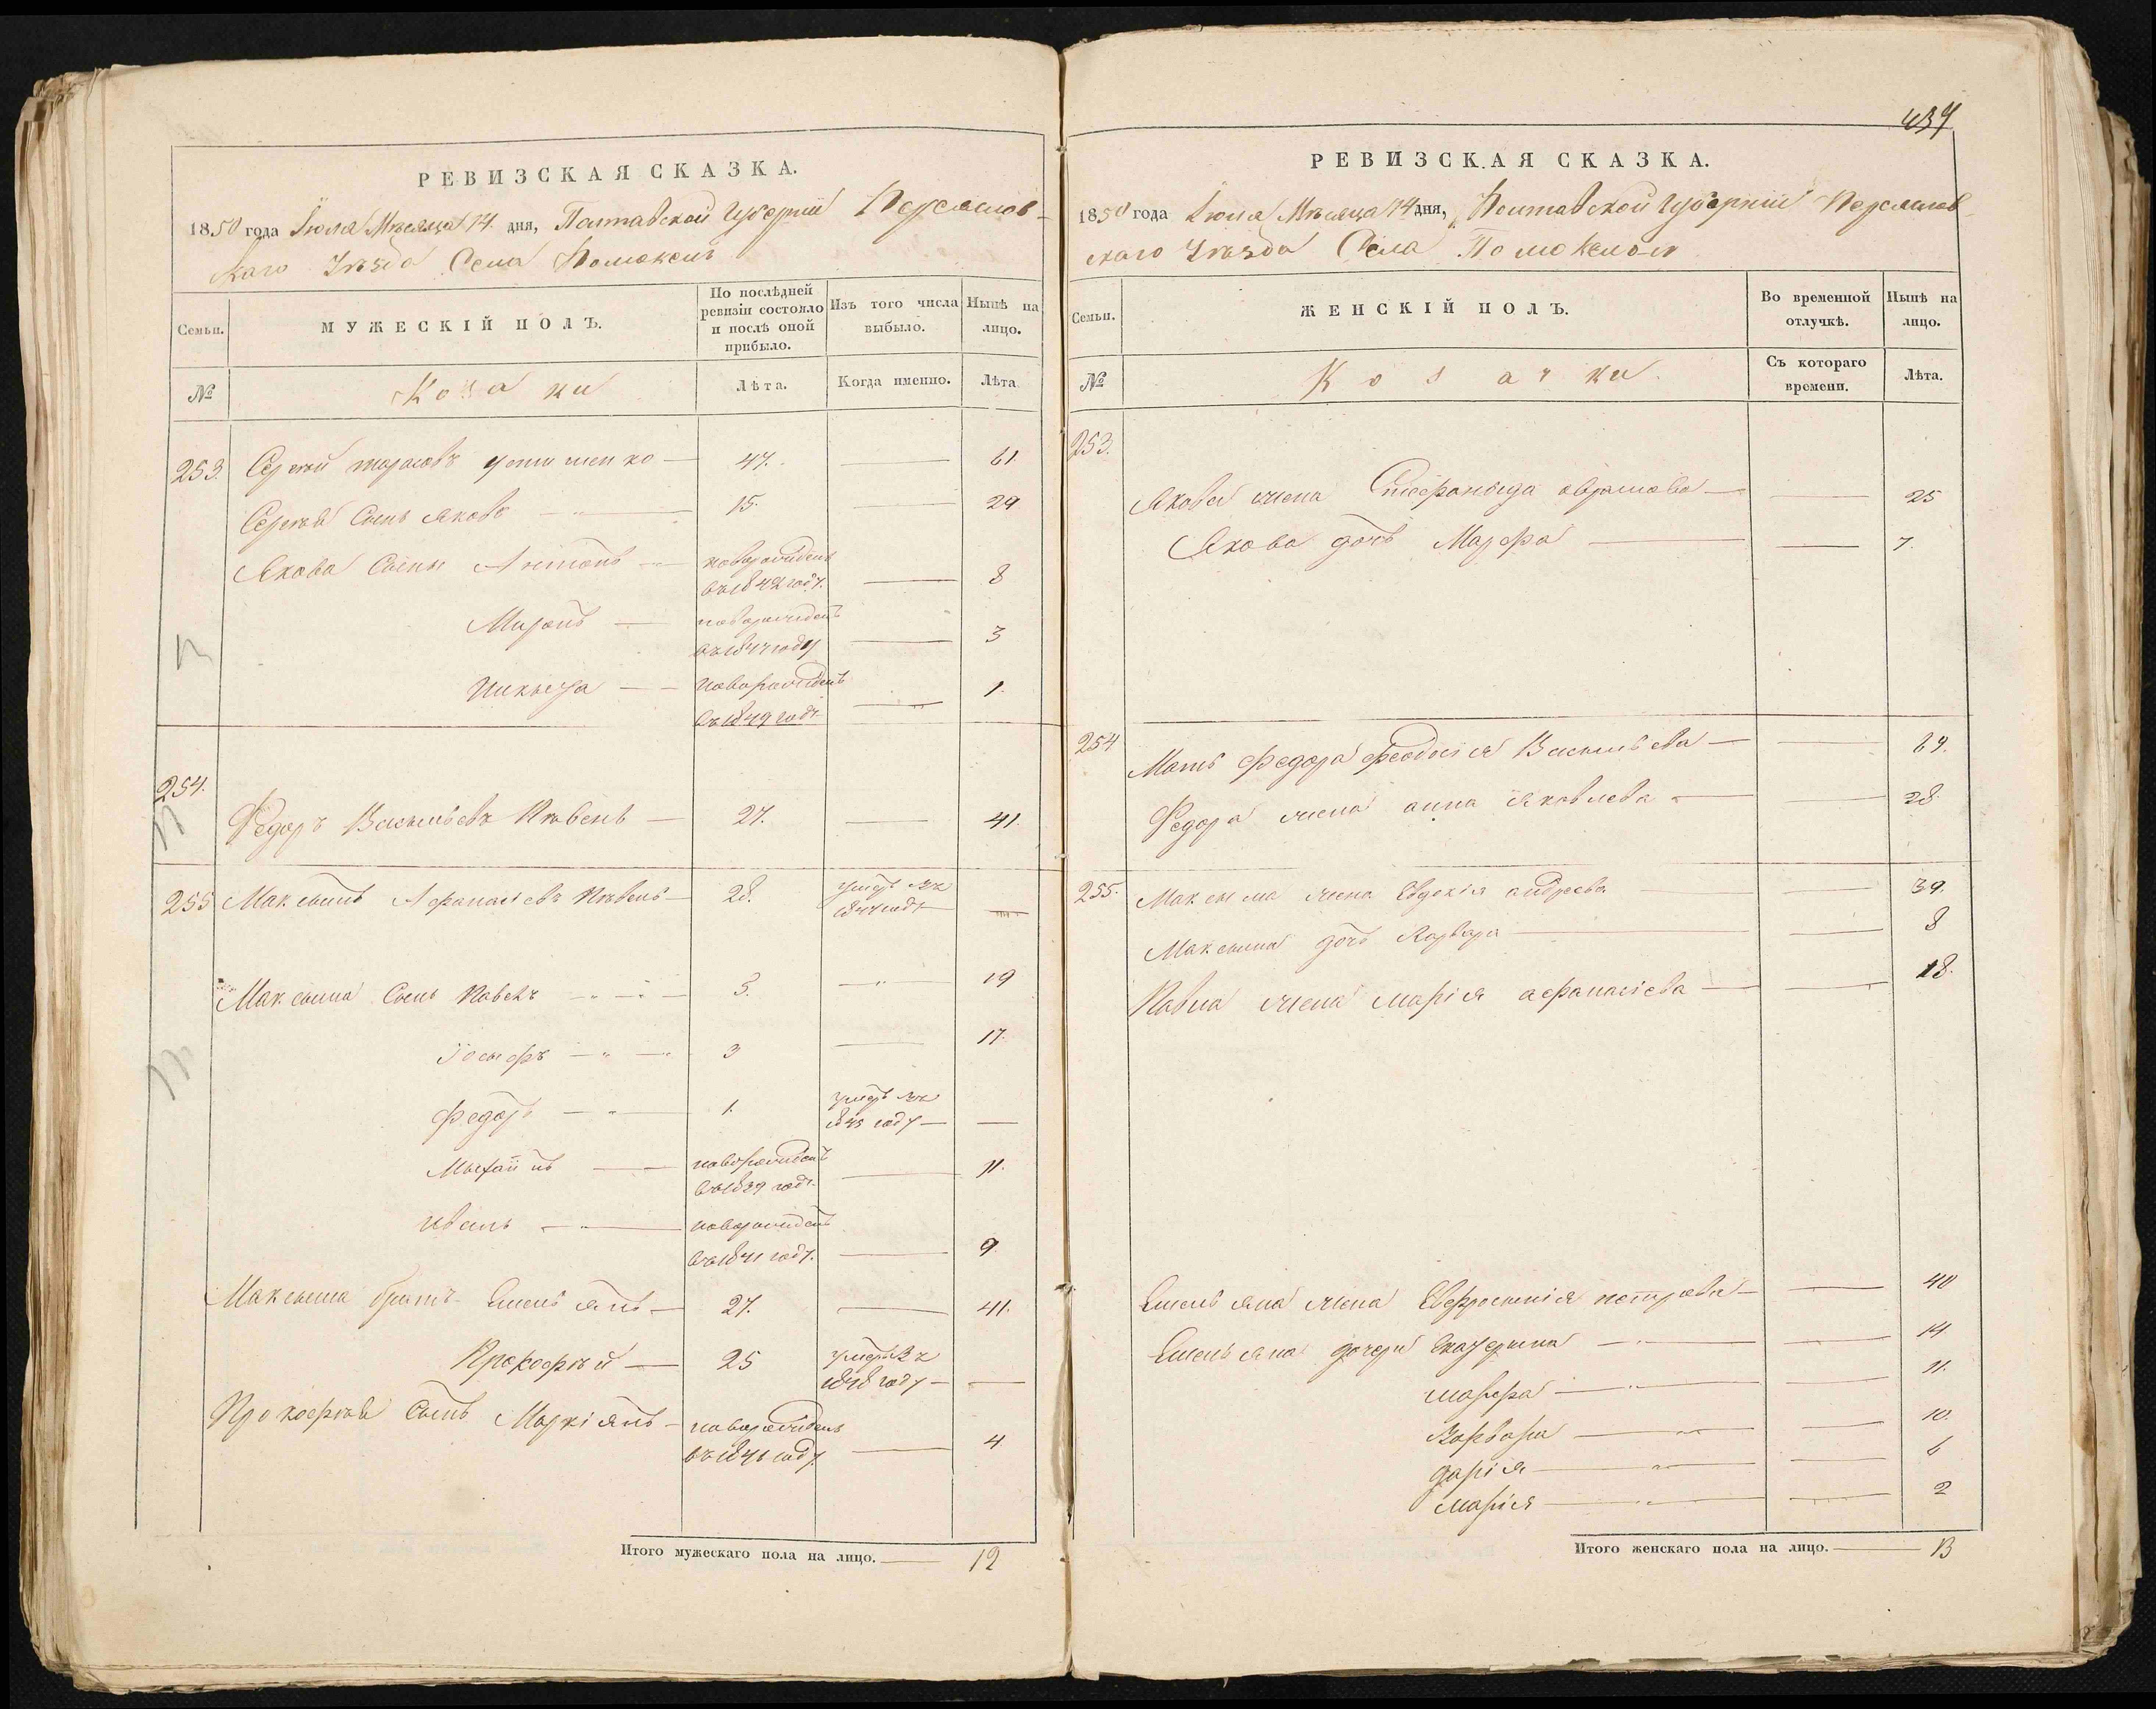 437
РЕВИЗСКАЯ СКАЗКА.
1850 года Іюля Мѣсяца 14. дня, Полтавской Губерніи Переяслов-
скаго Уѣзда Села Помоклей
Семьи.
МУЖЕСКІЙ ПОЛЪ.
По послѣдней ревизіи состояло и послѣ оной прибыло.
Изъ того числа выбыло.
Нынѣ на лицо.
№
Козаки
Лѣта.
Когда именно.
Лѣта
253. Сергѣй Тарасовъ — 47. — 61.
Сергѣя Сынъ Яковъ — 15. — 29
Якова Сыны Антонъ — новорожденъ
въ 1842 году. — 8
Миронъ — новорожденъ
въ 1847 году — 3
Никыта — новорожденъ
въ 1849 году. — 1.
254.
Федоръ Васыльевъ Пѣвень — 27. — 41.
255 Максымъ Афанасіевъ Пѣвень — 28. умеръ въ
1844 году —
Максыма Сынъ Павелъ — 5. — 19
Іосыфъ — 3 — 17.
Федоръ — 1. умеръ въ
1845 году — —
Мыхаилъ — новорожденъ
въ 1839 году. — 11.
Иванъ — новорожденъ
въ 1841 году. — 9.
Максыма братъ Емельянъ — 27. — 41.
Прокофѣй — 25 умеръ въ
1848 году — —
Прокофѣя Сынъ Маркіянъ — новорожденъ
въ 1846 году. — 4
Итого мужескаго пола на лицо. — 12
РЕВИЗСКАЯ СКАЗКА.
1850 года Іюля Мѣсяца 14 дня, Полтавской Губерніи Переяслов-
скаго Уѣзда Села Помоклей
Семьи.
ЖЕНСКІЙ ПОЛЪ.
Во временной отлучкѣ.
Нынѣ на лицо.
№
Козачки.
Съ котораго времени.
Лѣта.
253.
Якова жена Стефаныда аврамова — — 25
Якова дочь Марфа — — 7.
254
Мать Федора феодосія Васыльева — 64.
Федора жена анна яковлева — — 28.
255. Максыма жена Евдокія андреева — 39.
Максыма дочь Варвара — — 8
Павла жена марія афанасіева — — 18.
Емельяна жена Евфросынія петрова — — 40
Емельяна дочери Екатерына — — 14
марфа — — 11.
Варвара — — 10.
дарія — — 6
марія — — 2
Итого женскаго пола на лицо. — 13